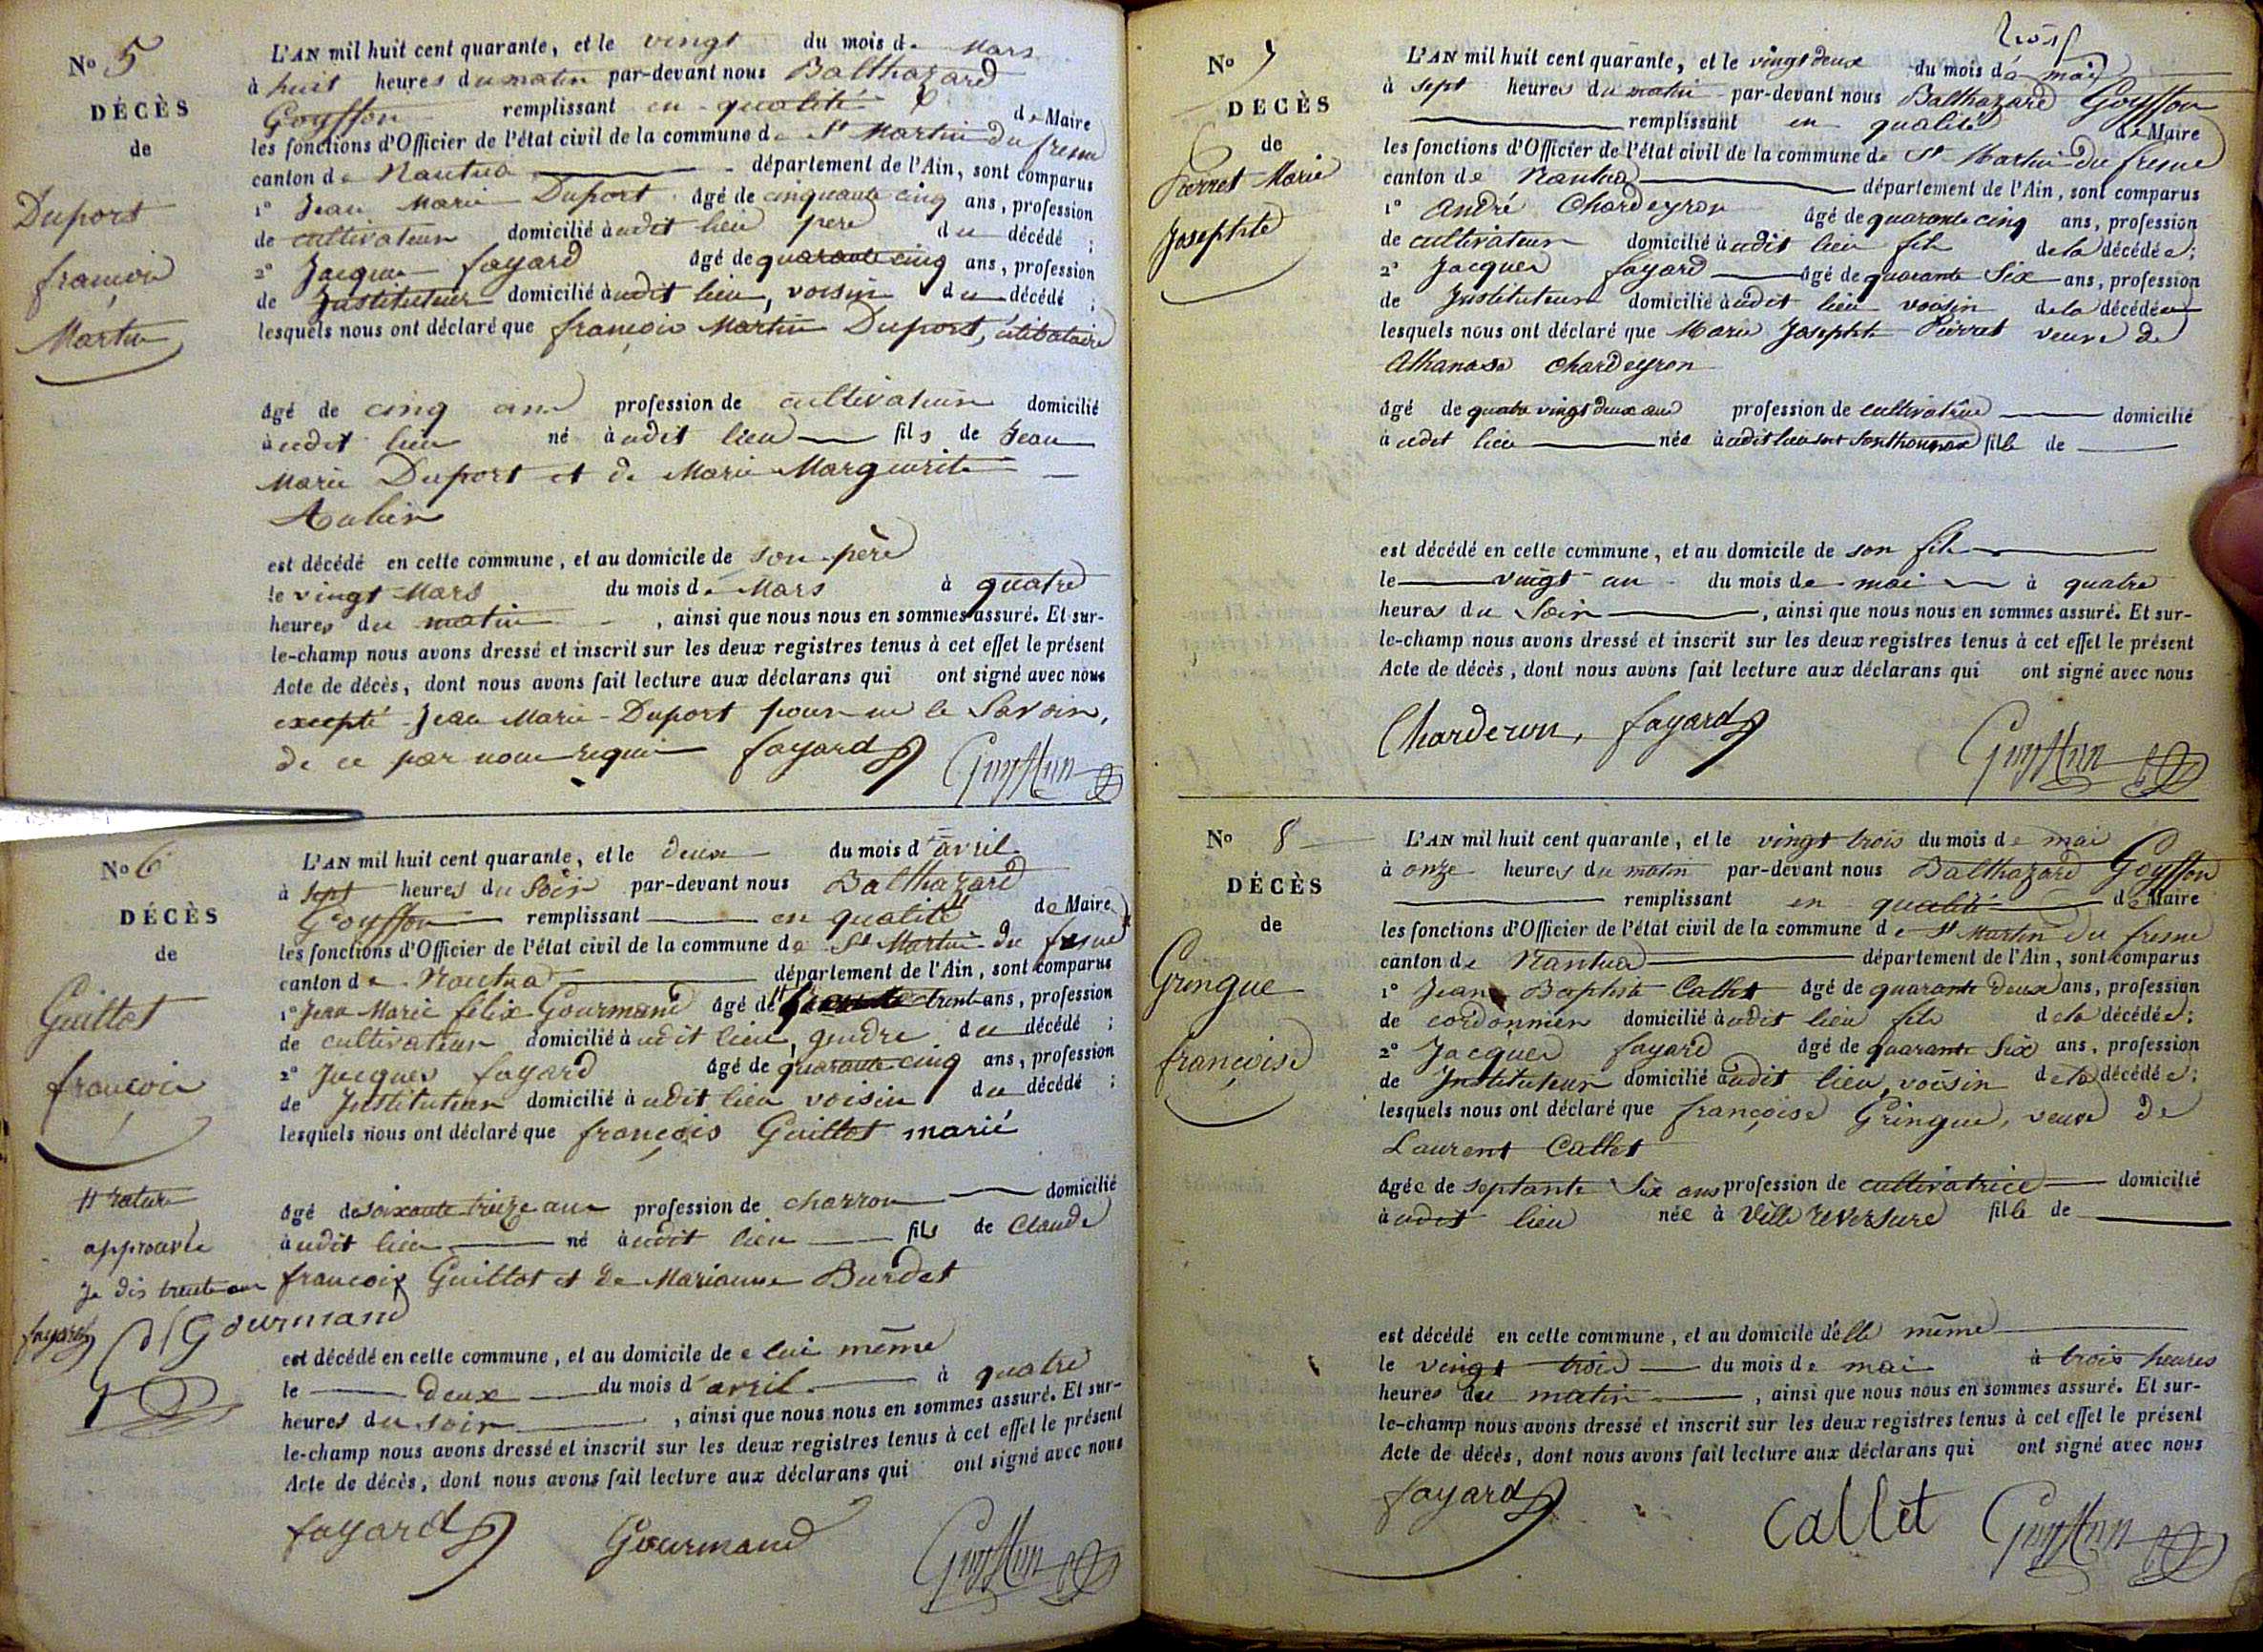 N° 5
DÉCÈS
de
Duport
françois
Martin
L'AN mil huit cent quarante, et le vingt du mois de Mars
à huit heures du matin par-devant nous Balthazard
Goyffon remplissant en qualité de Maire
les fonctions d'Officier de l'état civil de la commune de St Martin du fresne
canton de Nantua département de l'Ain, sont comparus
1° Jean Marie Duport âgé de cinquante cinq ans, profession
de cultivateur domicilié audit lieu pere du décédé ;
2° Jacques fayard âgé de quarante cinq ans, profession
de Instituteur domicilié audit lieu, voisin du décédé ;
lesquels nous ont déclaré que françois Martin Duport, célibataire
âgé de cinq ans profession de cultivateur domicilié
audit lieu né audit lieu fils de Jean
Marie Duport et de Marie Marguerite
Aubin
est décédé en cette commune, et au domicile de son père
le vingt Mars du mois de Mars à quatre
heures du matin , ainsi que nous nous en sommes assuré. Et sur-
le-champ nous avons dressé et inscrit sur les deux registres tenus à cet effet le présent
Acte de décès, dont nous avons fait lecture aux déclarans qui ont signé avec nous
excepté Jean Marie Duport pour ne le Savoir,
de ce par nous requis fayard Goyffon
N° 6
DÉCÈS
de
Guillot
françois
rature
approuvée
Je dis trente ans
fayard Gourmand
L'AN mil huit cent quarante, et le deux du mois d'avril
à sept heures du Soir par-devant nous Balthazard
Goyffon remplissant en qualité de Maire
les fonctions d'Officier de l'état civil de la commune de St Martin du fresne
canton de Nantua département de l'Ain, sont comparus
1° Jean Marie félix Gourmand âgé de trente ans, profession
de cultivateur domicilié audit lieu, gendre du décédé ;
2° Jacques fayard âgé de quarante cinq ans, profession
de Instituteur domicilié audit lieu voisin du décédé ;
lesquels nous ont déclaré que françois Guillot marié
âgé de soixante treize ans profession de charron domicilié
audit lieu né audit lieu fils de Claude
françois Guillot et de Marianne Burdet
est décédé en cette commune, et au domicile de e lui même
le deux du mois d'avril à quatre
heures du soir , ainsi que nous nous en sommes assuré. Et sur-
le-champ nous avons dressé et inscrit sur les deux registres tenus à cet effet le présent
Acte de décès, dont nous avons fait lecture aux déclarans qui ont signé avec nous
fayard Gourmand Goyffon
N° 7
DÉCÈS
de
Pierret Marie
Josephte
L'AN mil huit cent quarante, et le vingt deux du mois de mai
à sept heures du matin par-devant nous Balthazard Goyffon
remplissant en qualité de Maire
les fonctions d'Officier de l'état civil de la commune de St Martin du fresne
canton de Nantua département de l'Ain, sont comparus
1° André Chardeyron âgé de quarante cinq ans, profession
de cultivateur domicilié audit lieu fils de la décédée ;
2° Jacques fayard âgé de quarante Six ans, profession
de Instituteur domicilié audit lieu voisin de la décédée
lesquels nous ont déclaré que Marie Josephte Pierret veuve de
Athanase Chardeyron
âgé de quatre vingt deux ans profession de cultivatrice domicilié
audit lieu née à fille de
est décédé en cette commune, et au domicile de son fils
le vingt un du mois de mai à quatre
heures du Soir , ainsi que nous nous en sommes assuré. Et sur-
le-champ nous avons dressé et inscrit sur les deux registres tenus à cet effet le présent
Acte de décès, dont nous avons fait lecture aux déclarans qui ont signé avec nous
Charderon, fayard Goyffon
N° 8
DÉCÈS
de
Gringue
françoise
L'AN mil huit cent quarante, et le vingt trois du mois de mai
à onze heures du matin par-devant nous Balthazard Goyffon
remplissant en qualité de Maire
les fonctions d'Officier de l'état civil de la commune de St Martin du fresne
canton de Nantua département de l'Ain, sont comparus
1° Jean Baptiste Callet âgé de quarante deux ans, profession
de cordonnier domicilié audit lieu fils de la décédée ;
2° Jacques fayard âgé de quarante Six ans, profession
de Instituteur domicilié audit lieu, voisin de la décédée ;
lesquels nous ont déclaré que françoise Gringue, veuve de
Laurent Callet
âgée de septante Six ans profession de cultivatrice domicilié
audit lieu née à Ville reversure fille de
est décédé en cette commune, et au domicile d'elle même
le vingt trois du mois de mai à trois heures
heures du matin , ainsi que nous nous en sommes assuré. Et sur-
le-champ nous avons dressé et inscrit sur les deux registres tenus à cet effet le présent
Acte de décès, dont nous avons fait lecture aux déclarans qui ont signé avec nous
fayard Callet Goyffon